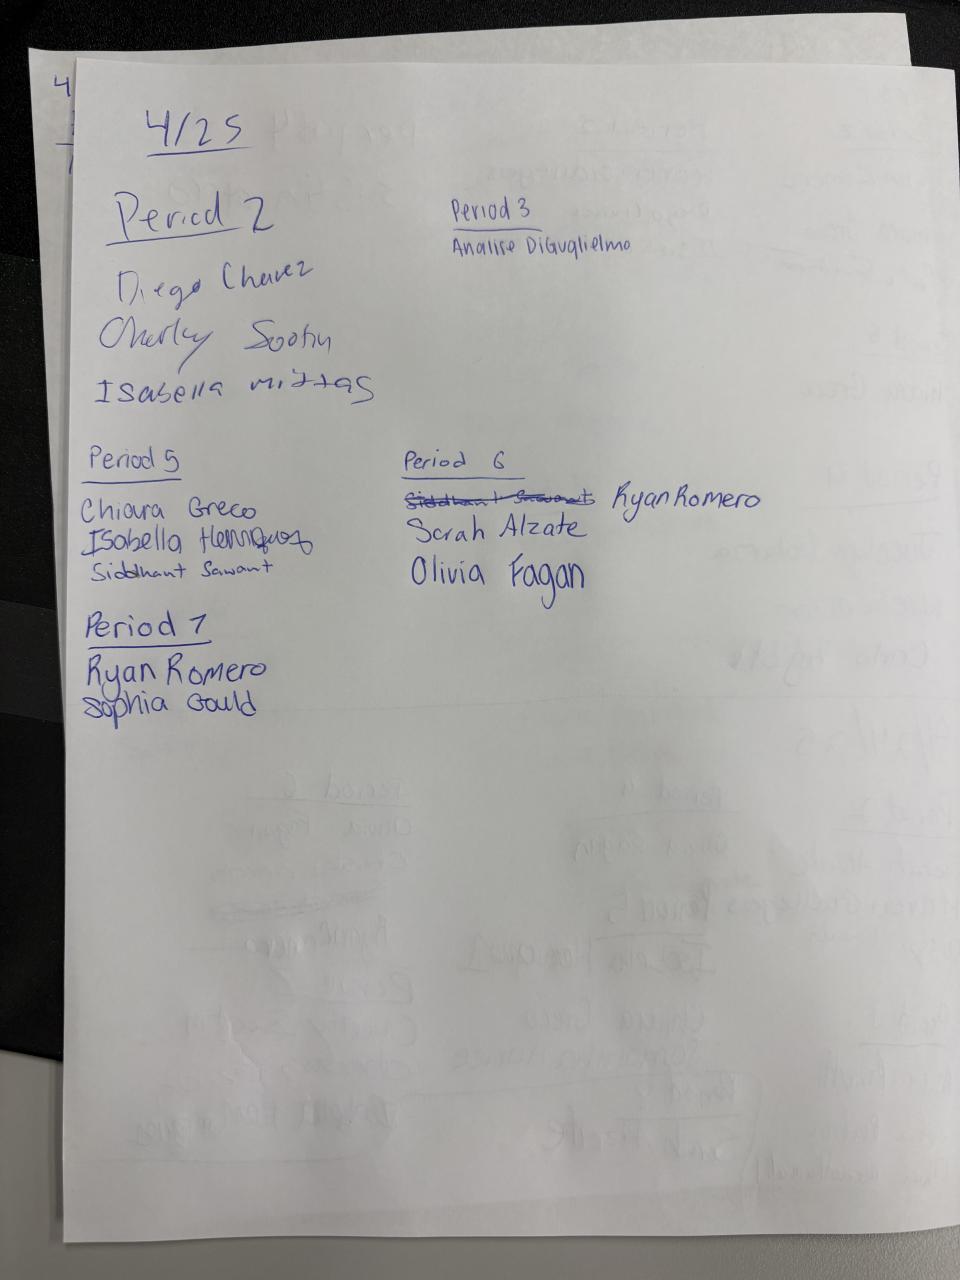 4/25
Period 2
Diego Chavez
Charley
Isabella mittas
Period 3
Analise DiGuglielmo
Period 5
Chiara Greco
Isabella Henriquez
Siddhant Sawant
Period 6
Siddhant Sawant Ryan Romero
Sarah Alzate
Olivia Fagan
Period 7
Ryan Romero
Sophia Gould
4